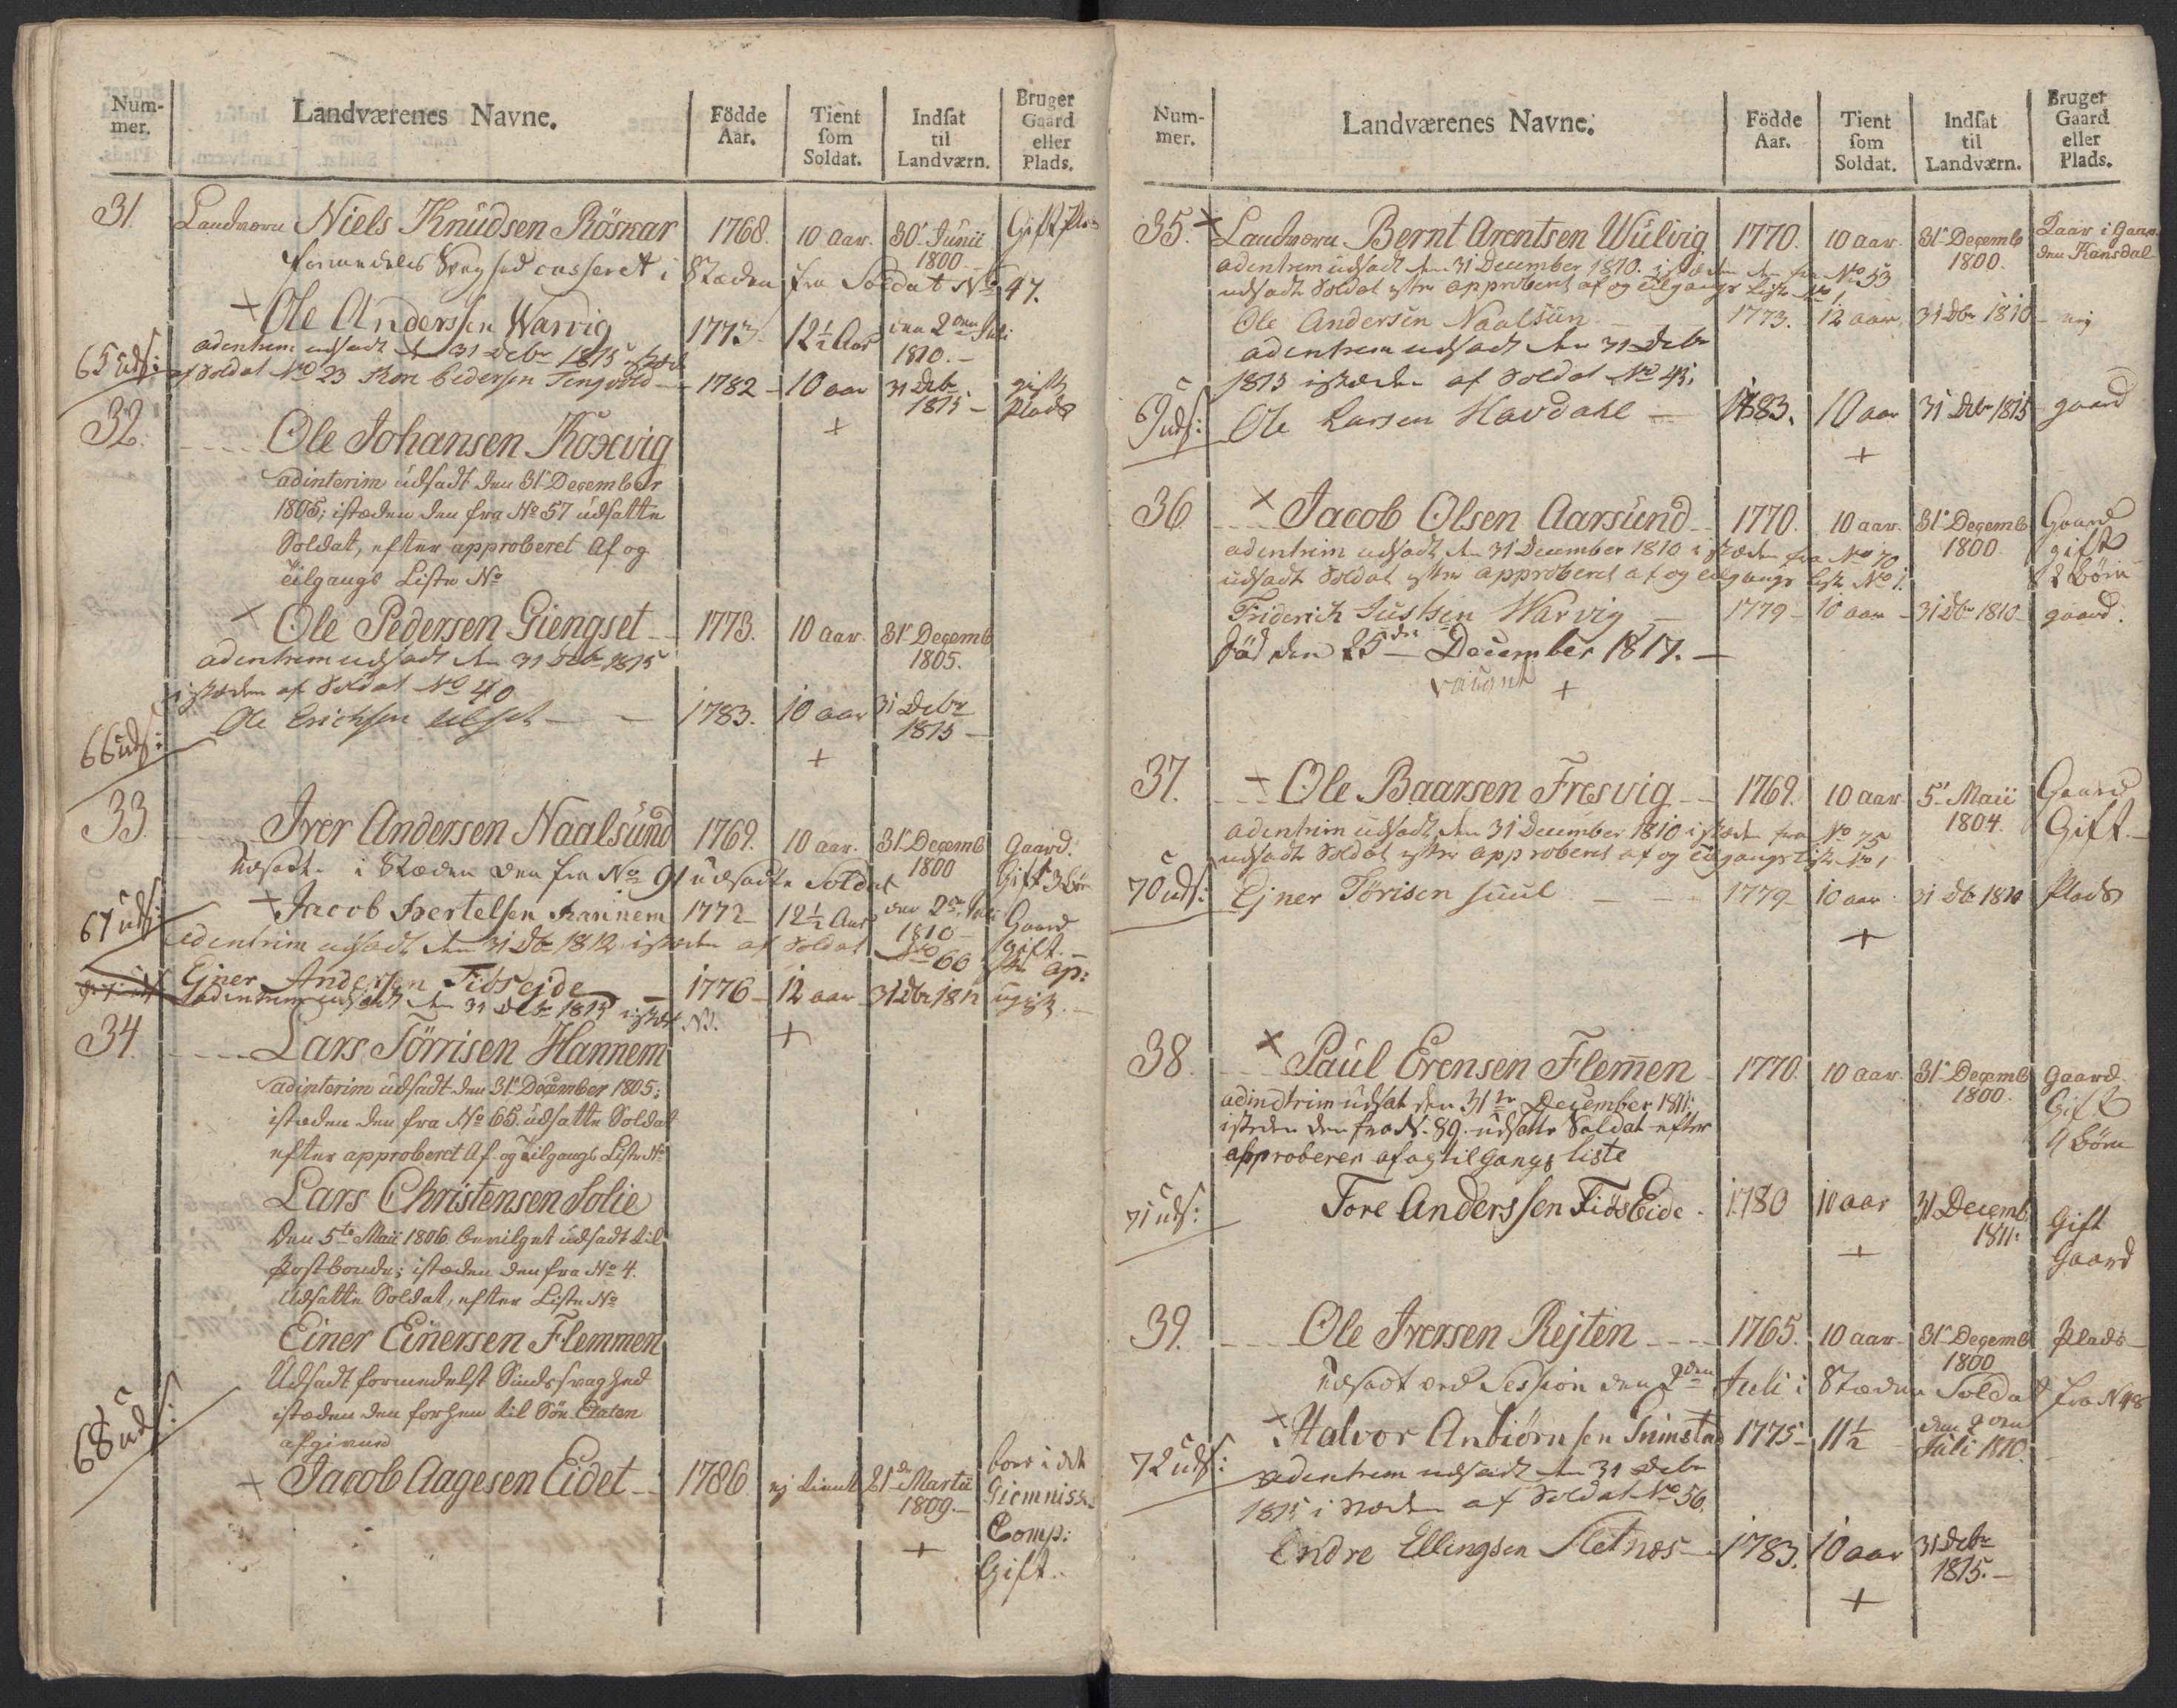 Num-mer. Landværenes Navne. Födde Aar. Tient som Soldat. Indsat til Landværn. Bruger Gaard eller Plads.
31. Landværn Niels Knudsen Rösnar 1768. 10 Aar. 30. Junii 1800 Gift Plads
formedelst Svaghed casseret i Stæden fra Soldat No 47.
+ Ole Anderssen Warvig 1773 12½ Aar den 2den Juli 1810.-
adentrem udsadt den 31 Debr 1815 istæden
65 uds: af Soldat No 23 Tore Pedersen Tengvold - 1782 - 10 aar 31 Debr 1815 - gift Plads
+
32. Ole Johansen Koxvig
adinterim udsadt den 31 December
1805; istæden den fra No 57 udsatte
Soldat, efter approberet Af og
tilgangs Liste No
+ Ole Pedersen Giengset 1773. 10 aar. 31 Decemb 1805.
adentrem udsadt den 31 Debr 1815
istæden af Soldat No 40
66 uds: Ole Erichsen Ulset - 1783. 10 aar 31 Debr 1815 -
+
33. Iver Andersen Naalsund 1769. 10 aar. 31 Decemb 1800 Gaard. Gift 3 Börn
Udsadt i Stæden den fra No 91 udsadte Soldat
67 uds: + Jacob Bertelsen Hannem 1772 - 12½ Aar den 2den Juli 1810 - Gaard gift.
adentrim udsadt den 31 Dbr 1812 istæden af Soldat No 66 efter ap:
Ejner Andersen Fidseide - 1776 - 12 aar - 31 Dbr 1812 ugift. -
adentrem udsadt den 31 Debr 1815 istæd
+
34. Lars Törrisen Hannem
adinterim udsadt den 31 December 1805;
istæden den fra No 65. udsatte Soldat
efter approberet Af og tilgangs Liste No
Lars Christensen Solie
Den 5te Maii 1806 bevilget udsadt til
Postbonde; istæden den fra No 4.
Udsatte Soldat, efter Liste No
Einer Einersen Flemmen
Udsadt formedelst Sindssvaghed
istæden den forhen til Söe Etaten
afgivne
68 uds: + Jacob Aagesen Eidet 1786 ej tient 21de Martii 1809.- boer i det Giemniske Comp: Gift.
+
Num-mer. Landværenes Navne. Födde Aar. Tient som Soldat. Indsat til Landværn. Bruger Gaard eller Plads.
35. + Landværn Bernt Arentsen Wulvig 1770. 10 aar 31 Decemb 1800. Raar i Gaar den Kansdal
adentrem udsadt den 31 December 1810. istæden den fra No 53
udsadte Soldat efter approberet af og tilgangs Liste No 1.
Ole Andersen Naalsun 1773. 12 aar 31 Dbr 1810 - nej
adentrem udsadt den 31 Debr
1815 istæden af Soldat No 45;
69 uds: Ole Larsen Havdahl - 1783. 10 aar 31 Debr 1815 - gaard
+
36 + Jacob Olsen Aarsund 1770. 10 aar. 31 Decemb 1800. Gaard gift 2 Börn
adentrim udsadt den 31 December 1810 istæden fra No 70
udsadte Soldat efter approberet af og tilgangs liste No 1.
Friderich Justsen Warvig 1779 - 10 aar - 31 Dbr 1810 - gaard.
död den 25de December 1817. -
vaignt
+
37. + Ole Baarsen Fresvig 1769. 10 aar 5 Maii 1804. Gaard Gift.
adentrim udsadt den 31 December 1810 istæden fra No 75
udsadte Soldat efter approberet af og tilgangs Liste No 1
70 uds: Ejner Törisen Juul - 1779 10 aar 31 Db 1810 Plads
+
38. + Paul Evensen Flem̄en 1770. 10 aar 31 Decemb 1800. Gaard Gift 4 Börn
adindtrim udsat den 31te December 1811:
isteden den fra N. 89. udsatte Soldat efter
approberen af og til Gangs liste
71 uds: Tore Anderssen Fiöseide - 1780 10 aar 31 Decemb 1811: Gift Gaard
+
39. Ole Iversen Rejten 1765. 10 aar. 31 Decemb 1800 Plads
Udsadt ved Session den 2den Juli i Stæden Soldat fra N 48
72 uds: + Halvor Anbiörnsen Grimstad 1775 - 11½ den 2den Juli 1810.
adentrem udsadt den 31 Debr
1815 i stæden af Soldat No 56.
Endre Ellingsen Sletnes 1783. 10 aar 31 Debr 1815. -
+